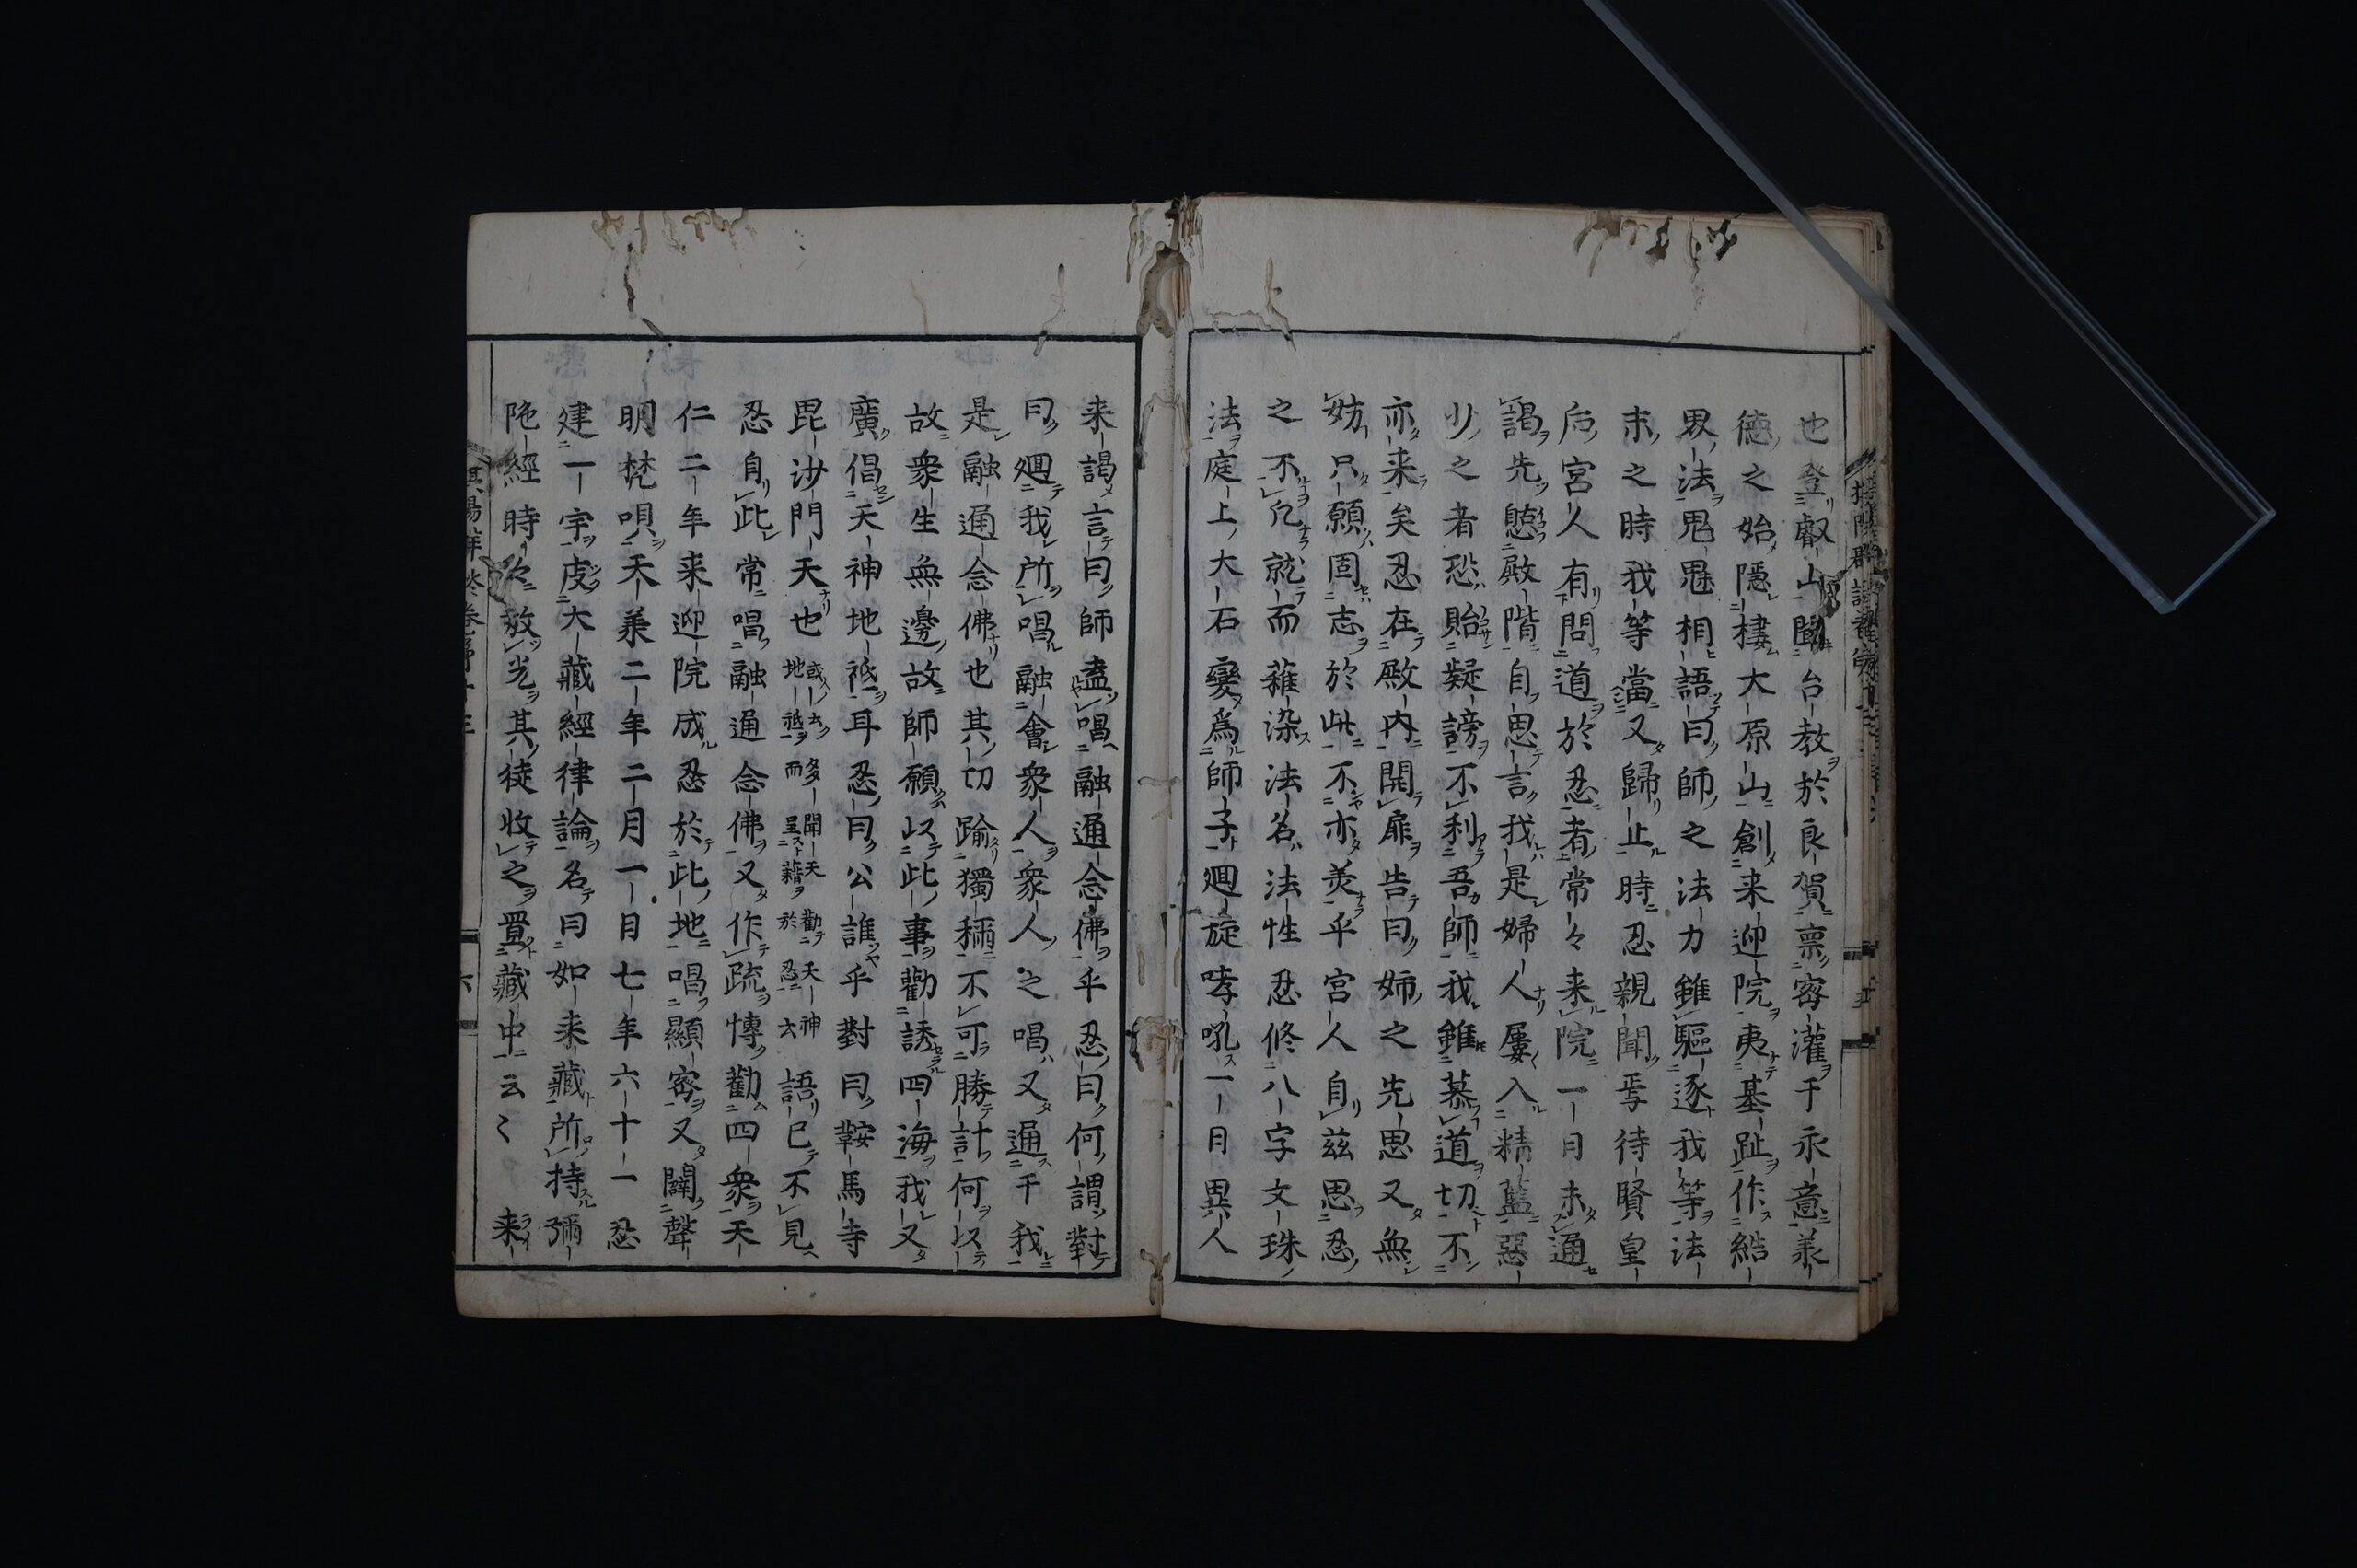 也登叡山聞台教於良賀禀密灌于永意兼
徳之始隱棲大原山創来迎院夷基趾作結
界法鬼魅相語曰師之法力雖驅逐我等法
末之時我等當又歸止時忍親聞焉待賢皇
后宮人有問道於忍者常々来院一日未通
謁先憩殿階自思言我是婦人屢入精藍惡
少之者恐貽疑謗不利吾師我雖慕道切不
亦来矣忍在殿内開扉告曰姉之先思又無
妨只願固志於此不亦羙乎宮人自茲思忍
之不凢就而薙染法名法性忍修八字文珠
法庭上大石變爲師子廻旋哮吼一日異人
来謁言曰師盍唱融通念佛乎忍曰何謂對
曰廻我所唱融會衆人衆人之唱又通于我
是融通念佛也其切踰獨稱不可勝計何以
故衆生無邊故師願以此事勸誘四海我又
廣倡天神地祇耳忍曰公誰乎對曰鞍馬寺
毘沙門天也或云多聞天勸天神
地祇而呈薭於忍云語已不見
忍自此常唱融通念佛又作疏慱勸四衆天
仁二年来迎院成忍於此地唱顯密又闢聲
明梵唄天羕二年二月一日七年六十一忍
建一宇庋大藏經律論名曰如来藏所持彌
陁經時々放光其徒收之置藏中云々 来